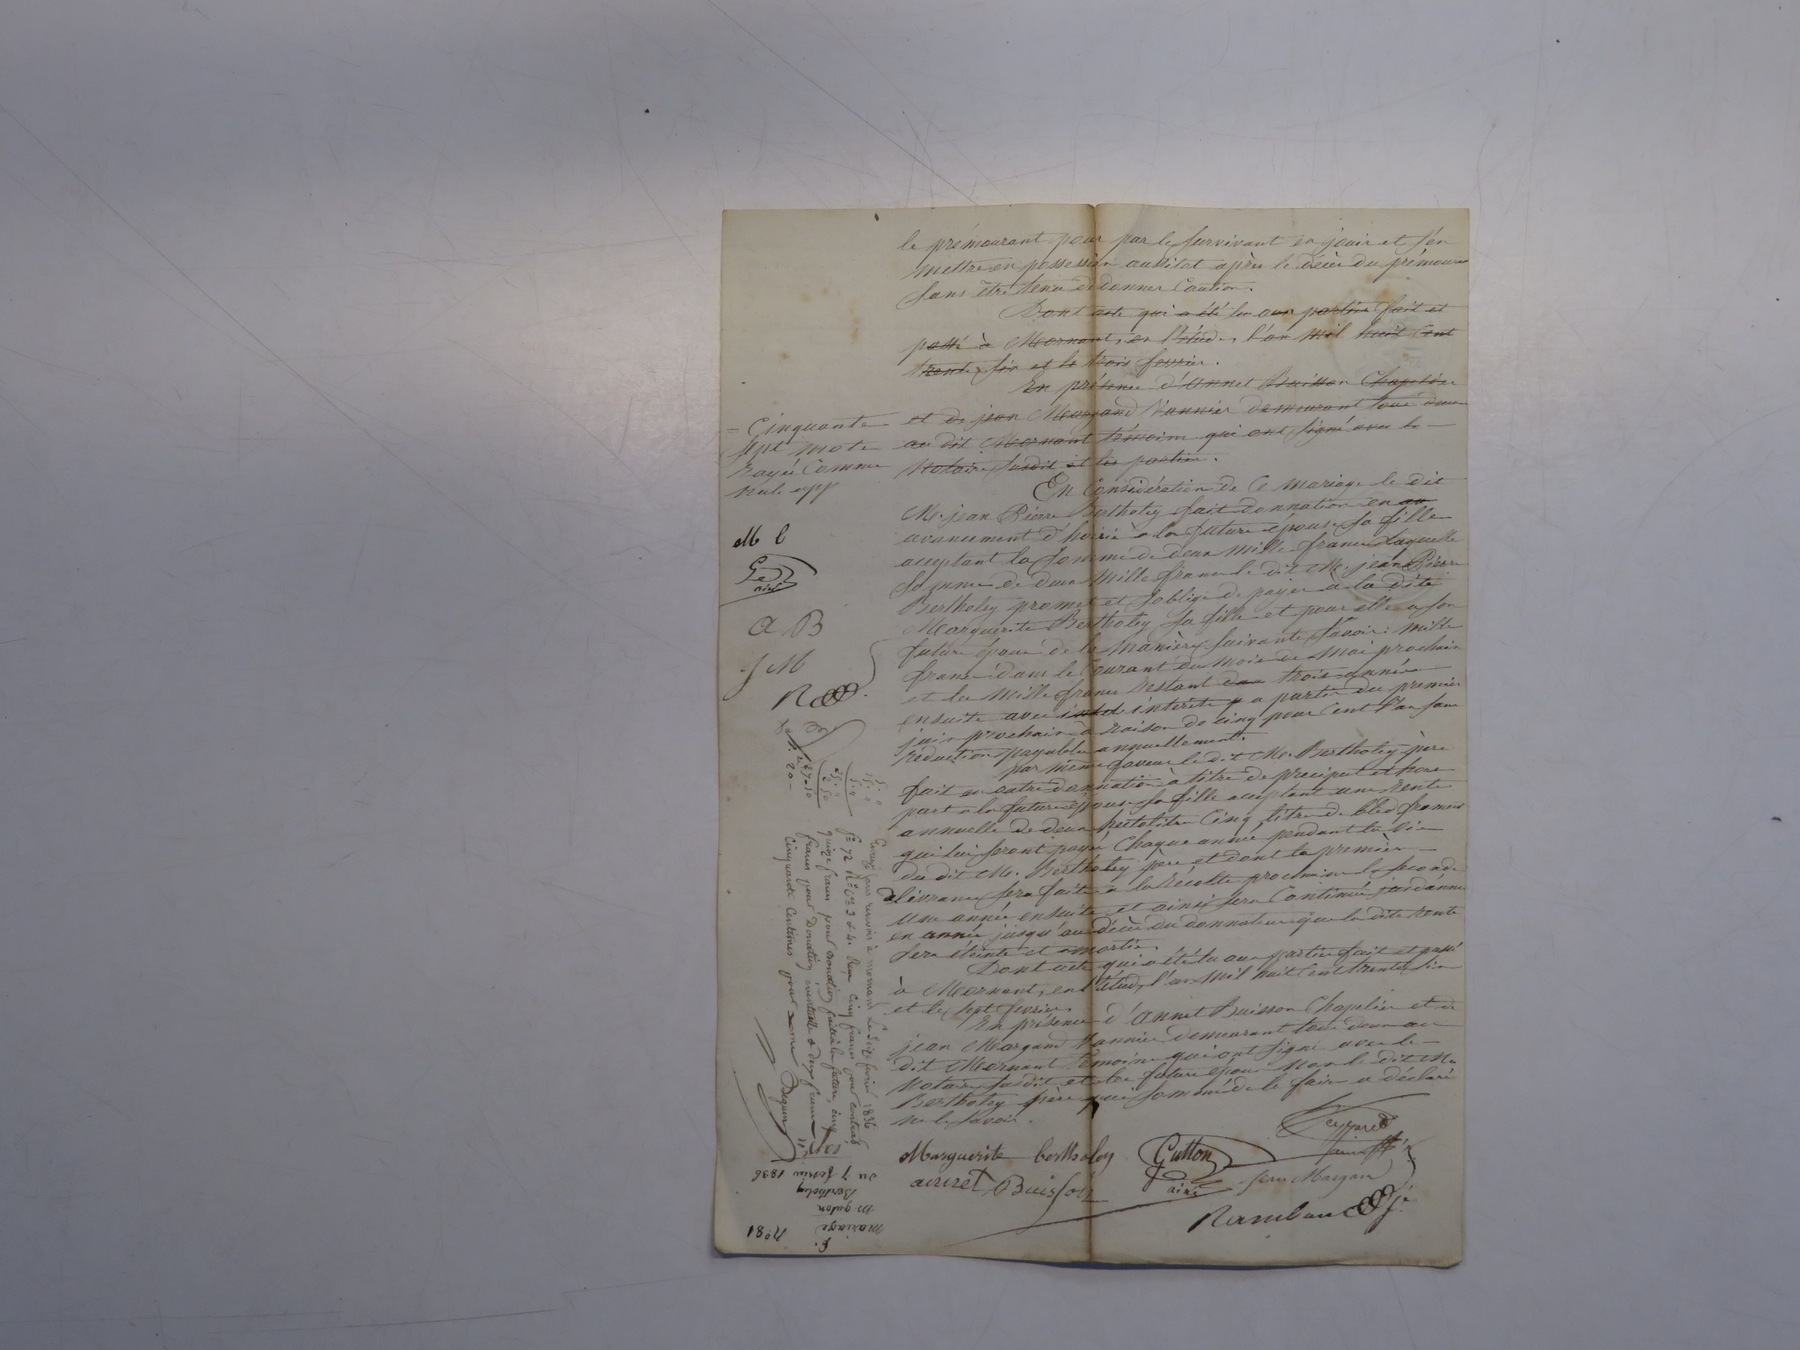 le prémourant pour par le survivant en jouir et s'en
mettre en possession aussitot après le décès du prémourant
sans être tenu de donner caution.
Dont acte qui a été lu aux parties fait et
passé à Mornant, en l'étude, l'an mil huit cent
trente six et le trois fevrier.
En présence d'annet Buisson Chapelier
et de jean Margand Vannier demeurant tous deux
au dit Mornant témoins qui ont signé avec le
Notaire susdit et les parties.
= Cinquante
sept mots
rayés Comme
nuls app
M b
A B
J M
En Considération de Ce mariage le dit
Mr. jean Pierre Bertholey fait donnation en
avancement d'hoirie à la future épouse sa fille
acceptant la somme de deux mille francs laquelle
somme de deux mille francs le dit Mr. jean Pierre
Bertholey promet et s'oblige de payer à la dite
Marguerite Bertholey sa fille et pour elle a son
futur époux de la manière suivante, savoir: mille
francs dans le Courant du mois de Mai prochain
et les mille francs restant dans trois années
ensuite avec intérêts a partir du premier
juin prochain à raison de cinq pour cent l'an sans
réduction payable annuellement.
par même faveur le dit Mr. Bertholey père
fait en outre donnation à titre de préciput et hors
part a la future épouse sa fille acceptant une rente
annuelle de deux hectolitres Cinq litres de bled froment
qui lui seront payés Chaque année pendant la vie
du dit Mr. Bertholey père et dont la premiere
délivrance sera faite a la récolte prochaine la seconde
une année ensuite et ainsi sera Continué jusdannée
en année jusqu'au décès du donnateur que la dite rente
sera éteinte et amortie.
Dont acte qui a été lu aux parties fait et passé
à Mornant, en l'étude, l'an mil huit cent trente six
et le sept fevrier.
En présence d'annet Buisson Chapelier et de
jean Margand Vannier demeurant tous deux au
dit Mornant témoins qui ont signé avec le
Notaire susdit et les futurs époux Non le dit Mr.
Bertholey père qui sommé de le faire a déclaré
ne le savoir.
Marguerite bertholey
Gutton
ainé
annet Buisson
Jean Margan
Enregistré à mornant le seize fevrier 1836
fo 72 Ro Ces 3 et 4. Reçu cinq francs pour contrat
quinze francs pour donation faite à la future, cinq
francs pour Donation éventuelle et deux francs
cinquante centimes pour dixme
No 81
mariage
Bertholey
du 7 fevrier 1836